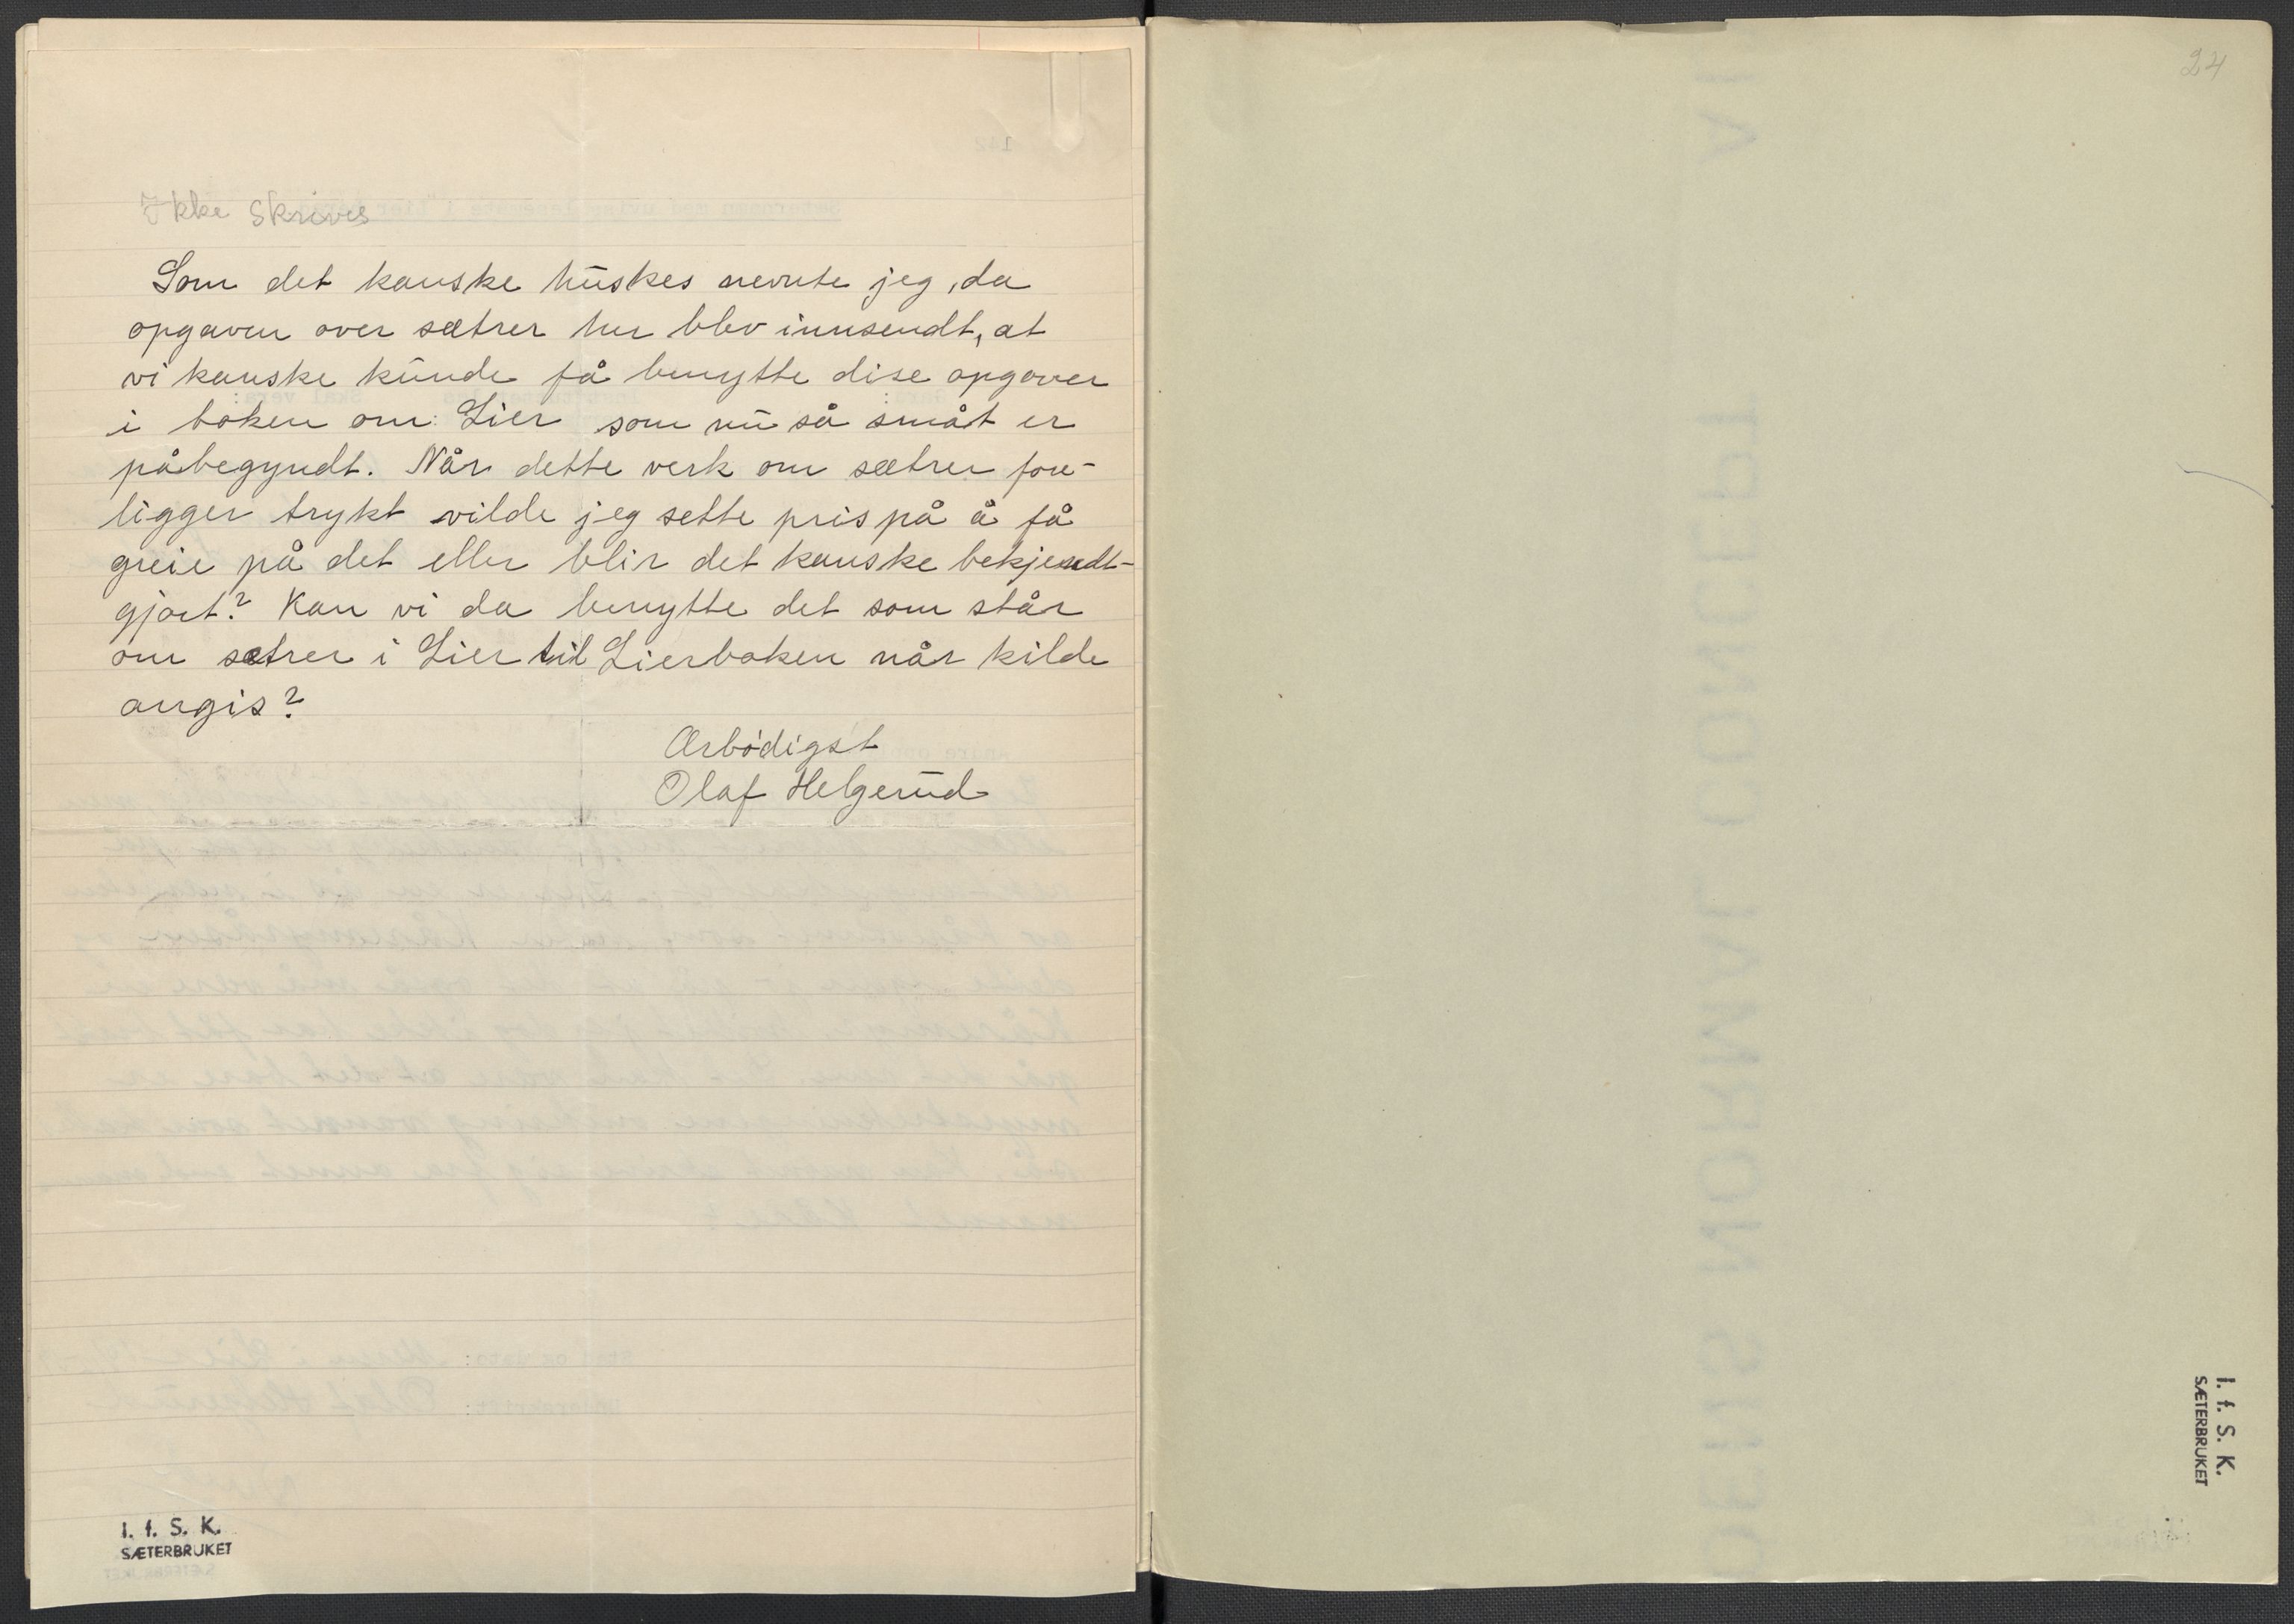 Ikke skrives
Som det kanske huskes nevnte jeg, da
opgaven over sætrer her blev innsendt, at
vi kanske kunde få benytte disse opgaver
i boken om Lier som nu så småt er
påbegyndt. Når dette verk om sætrer fore-
ligger trykt vilde jeg sette pris på å få
greie på det eller blir det kanske bekjendt-
gjort? Kan vi da benytte det som står
om sætrer i Lier til Lierboken når kilde
angis?
Ærbødigst
Olaf Helgerud
I. f. S. K.
SÆTERBRUKET
24
I. f. S. K.
SÆTERBRUKET